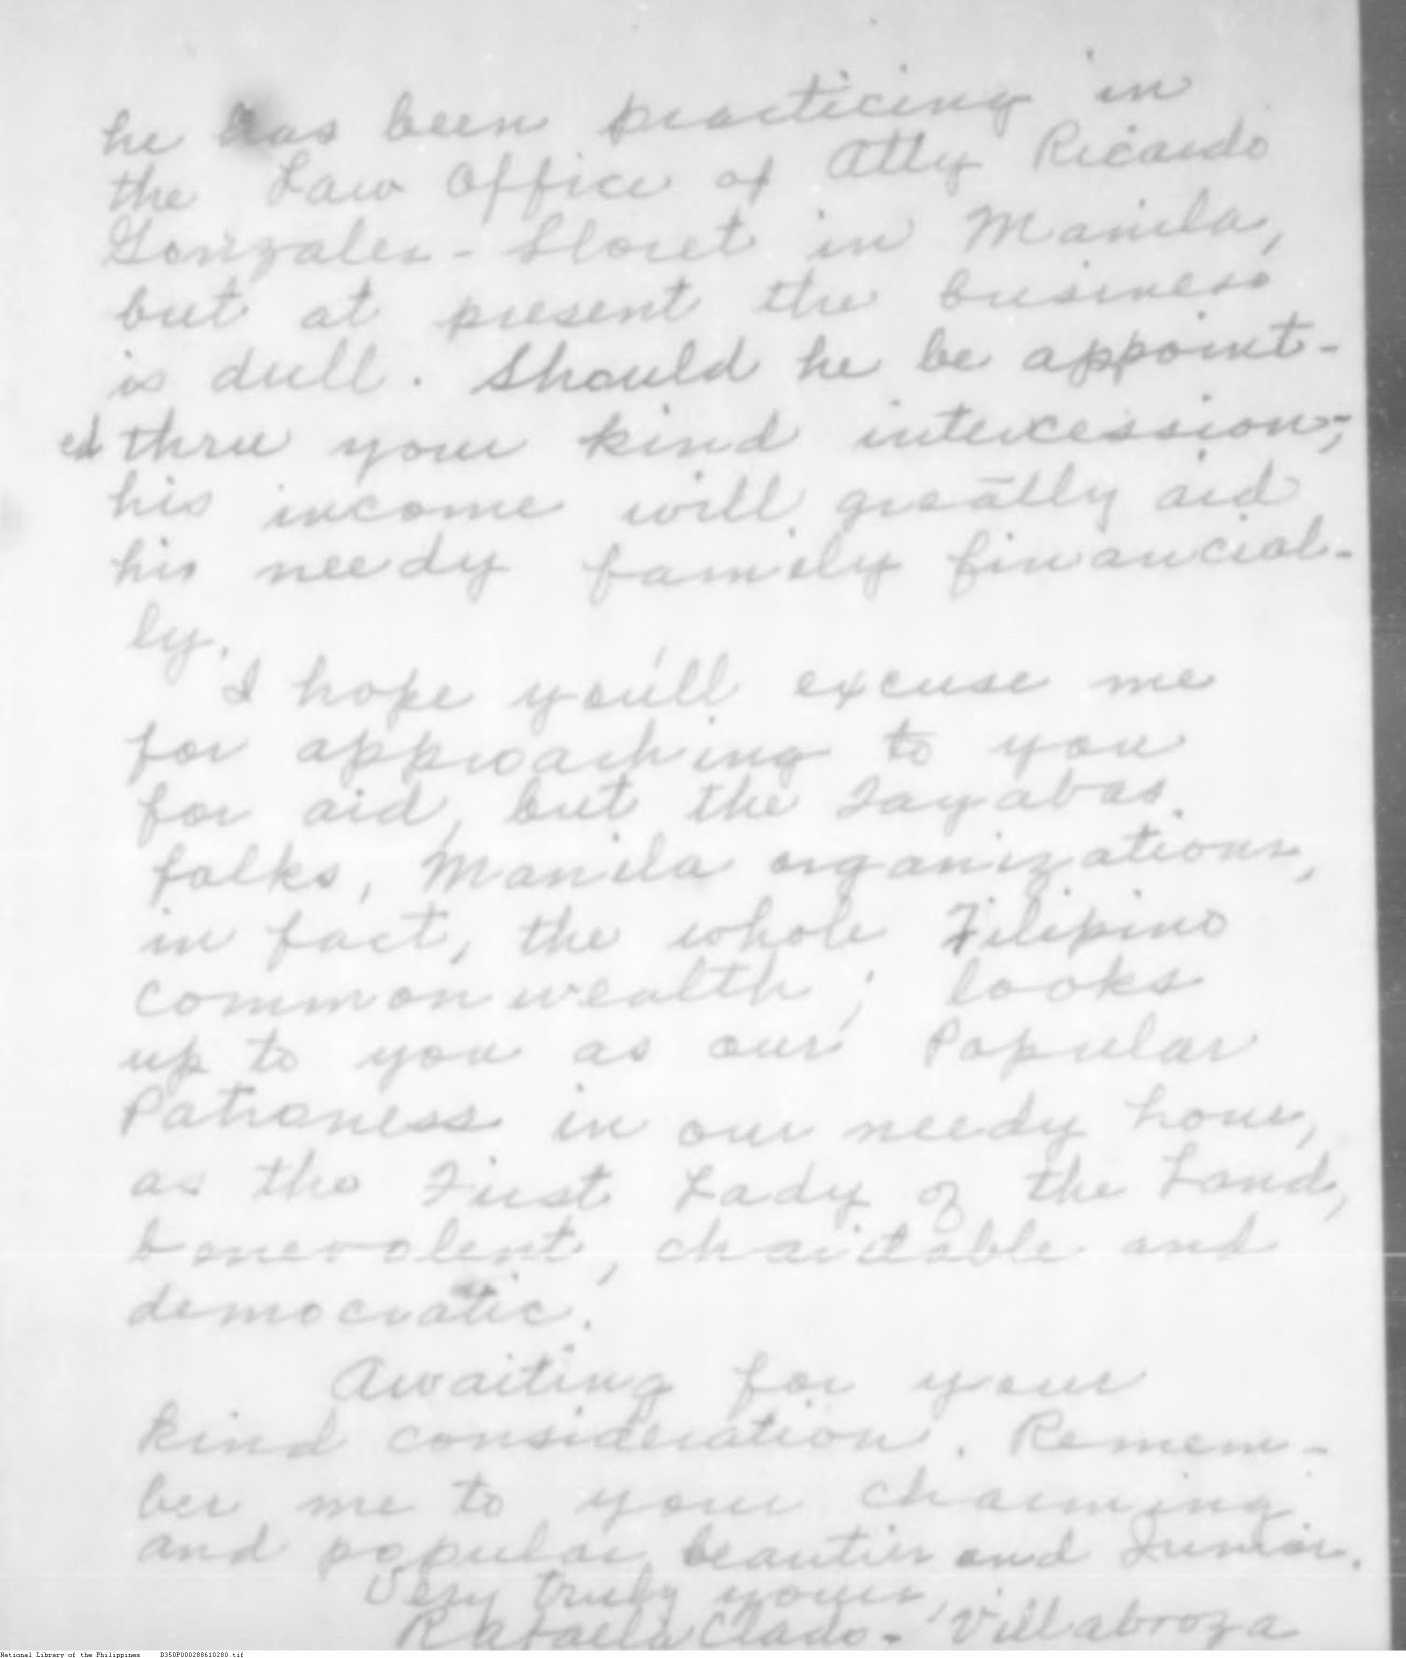 he has been practicing in
the Law Office of Atty Ricardo
Gonzales - Lloret in Manila,
but at present the business
is dull. Should he be appoint-
ed thru your kind intercession,
his income will greatly aid
his needy family financial-
ly.
I hope you'll excuse me
for approaching to you
for aid, but the Tayabas
folks, Manila organizations,
in fact, the whole Filipino
commonwealth; looks
up to you as our Popular
Patroness in our needy hour,
as the First Lady of the Land,
benevolent, charitable and
democratic.
Awaiting for your
kind consideration. Remem-
ber me to your charming
and popular beauties and Junior.
Very truly yours,
Rafaela Clado - Villabroza
National Library of the Philippines D350P000288610280.tif